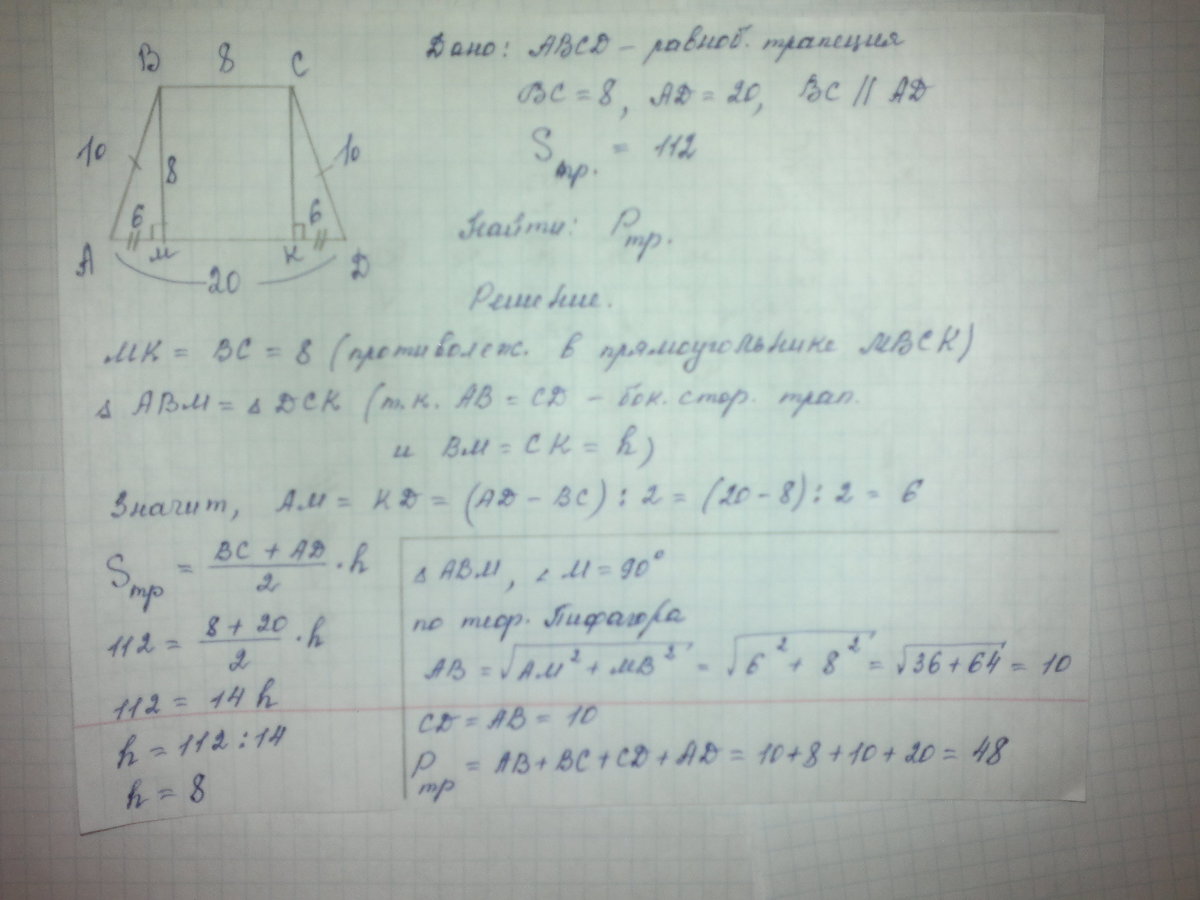 B 8 C
10 8 10
6 6
A M K D
20
Дано: ABCD – равноб. трапеция
BC = 8, AD = 20, BC // AD
Sтр. = 112
Найти: Pтр.
Решение.
MK = BC = 8 (противолеж. в прямоугольнике MBCK)
Δ ABM = Δ DCK (т.к. AB = CD – бок. стор. трап.
и BM = CK = h)
Значит, AM = KD = (AD – BC) : 2 = (20 - 8) : 2 = 6
Sтр = (BC + AD)/2 · h
112 = (8 + 20)/2 · h
112 = 14 h
h = 112 : 14
h = 8
Δ ABM, ∠ M = 90°
по теор. Пифагора
AB = √(AM² + MB²) = √(6² + 8²) = √(36 + 64) = 10
CD = AB = 10
Pтр = AB + BC + CD + AD = 10 + 8 + 10 + 20 = 48